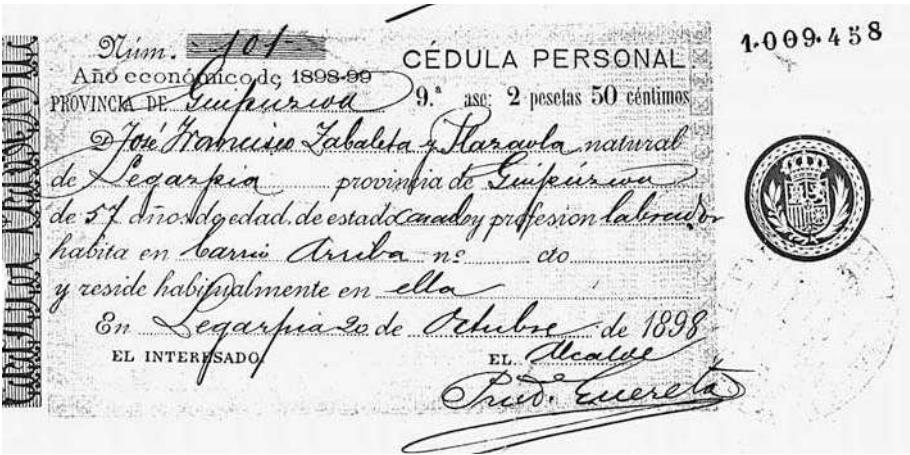 Núm. 101
1.009.458
CÉDULA PERSONAL
Año económico de 1898-99
PROVINCIA DE Guipúzcoa 9.ª ase: 2 pesetas 50 céntimos
D José Francisco Zabaleta y Plazaola natural
de Legazpia provincia de Guipúzcoa
de 57 años de edad, de estado casado y profesion labrador
habita en barrio Arriba nº cto
y reside habitualmente en ella
En Legazpia 20 de Octubre de 1898
EL INTERESADO, EL Alcalde
Prud.º